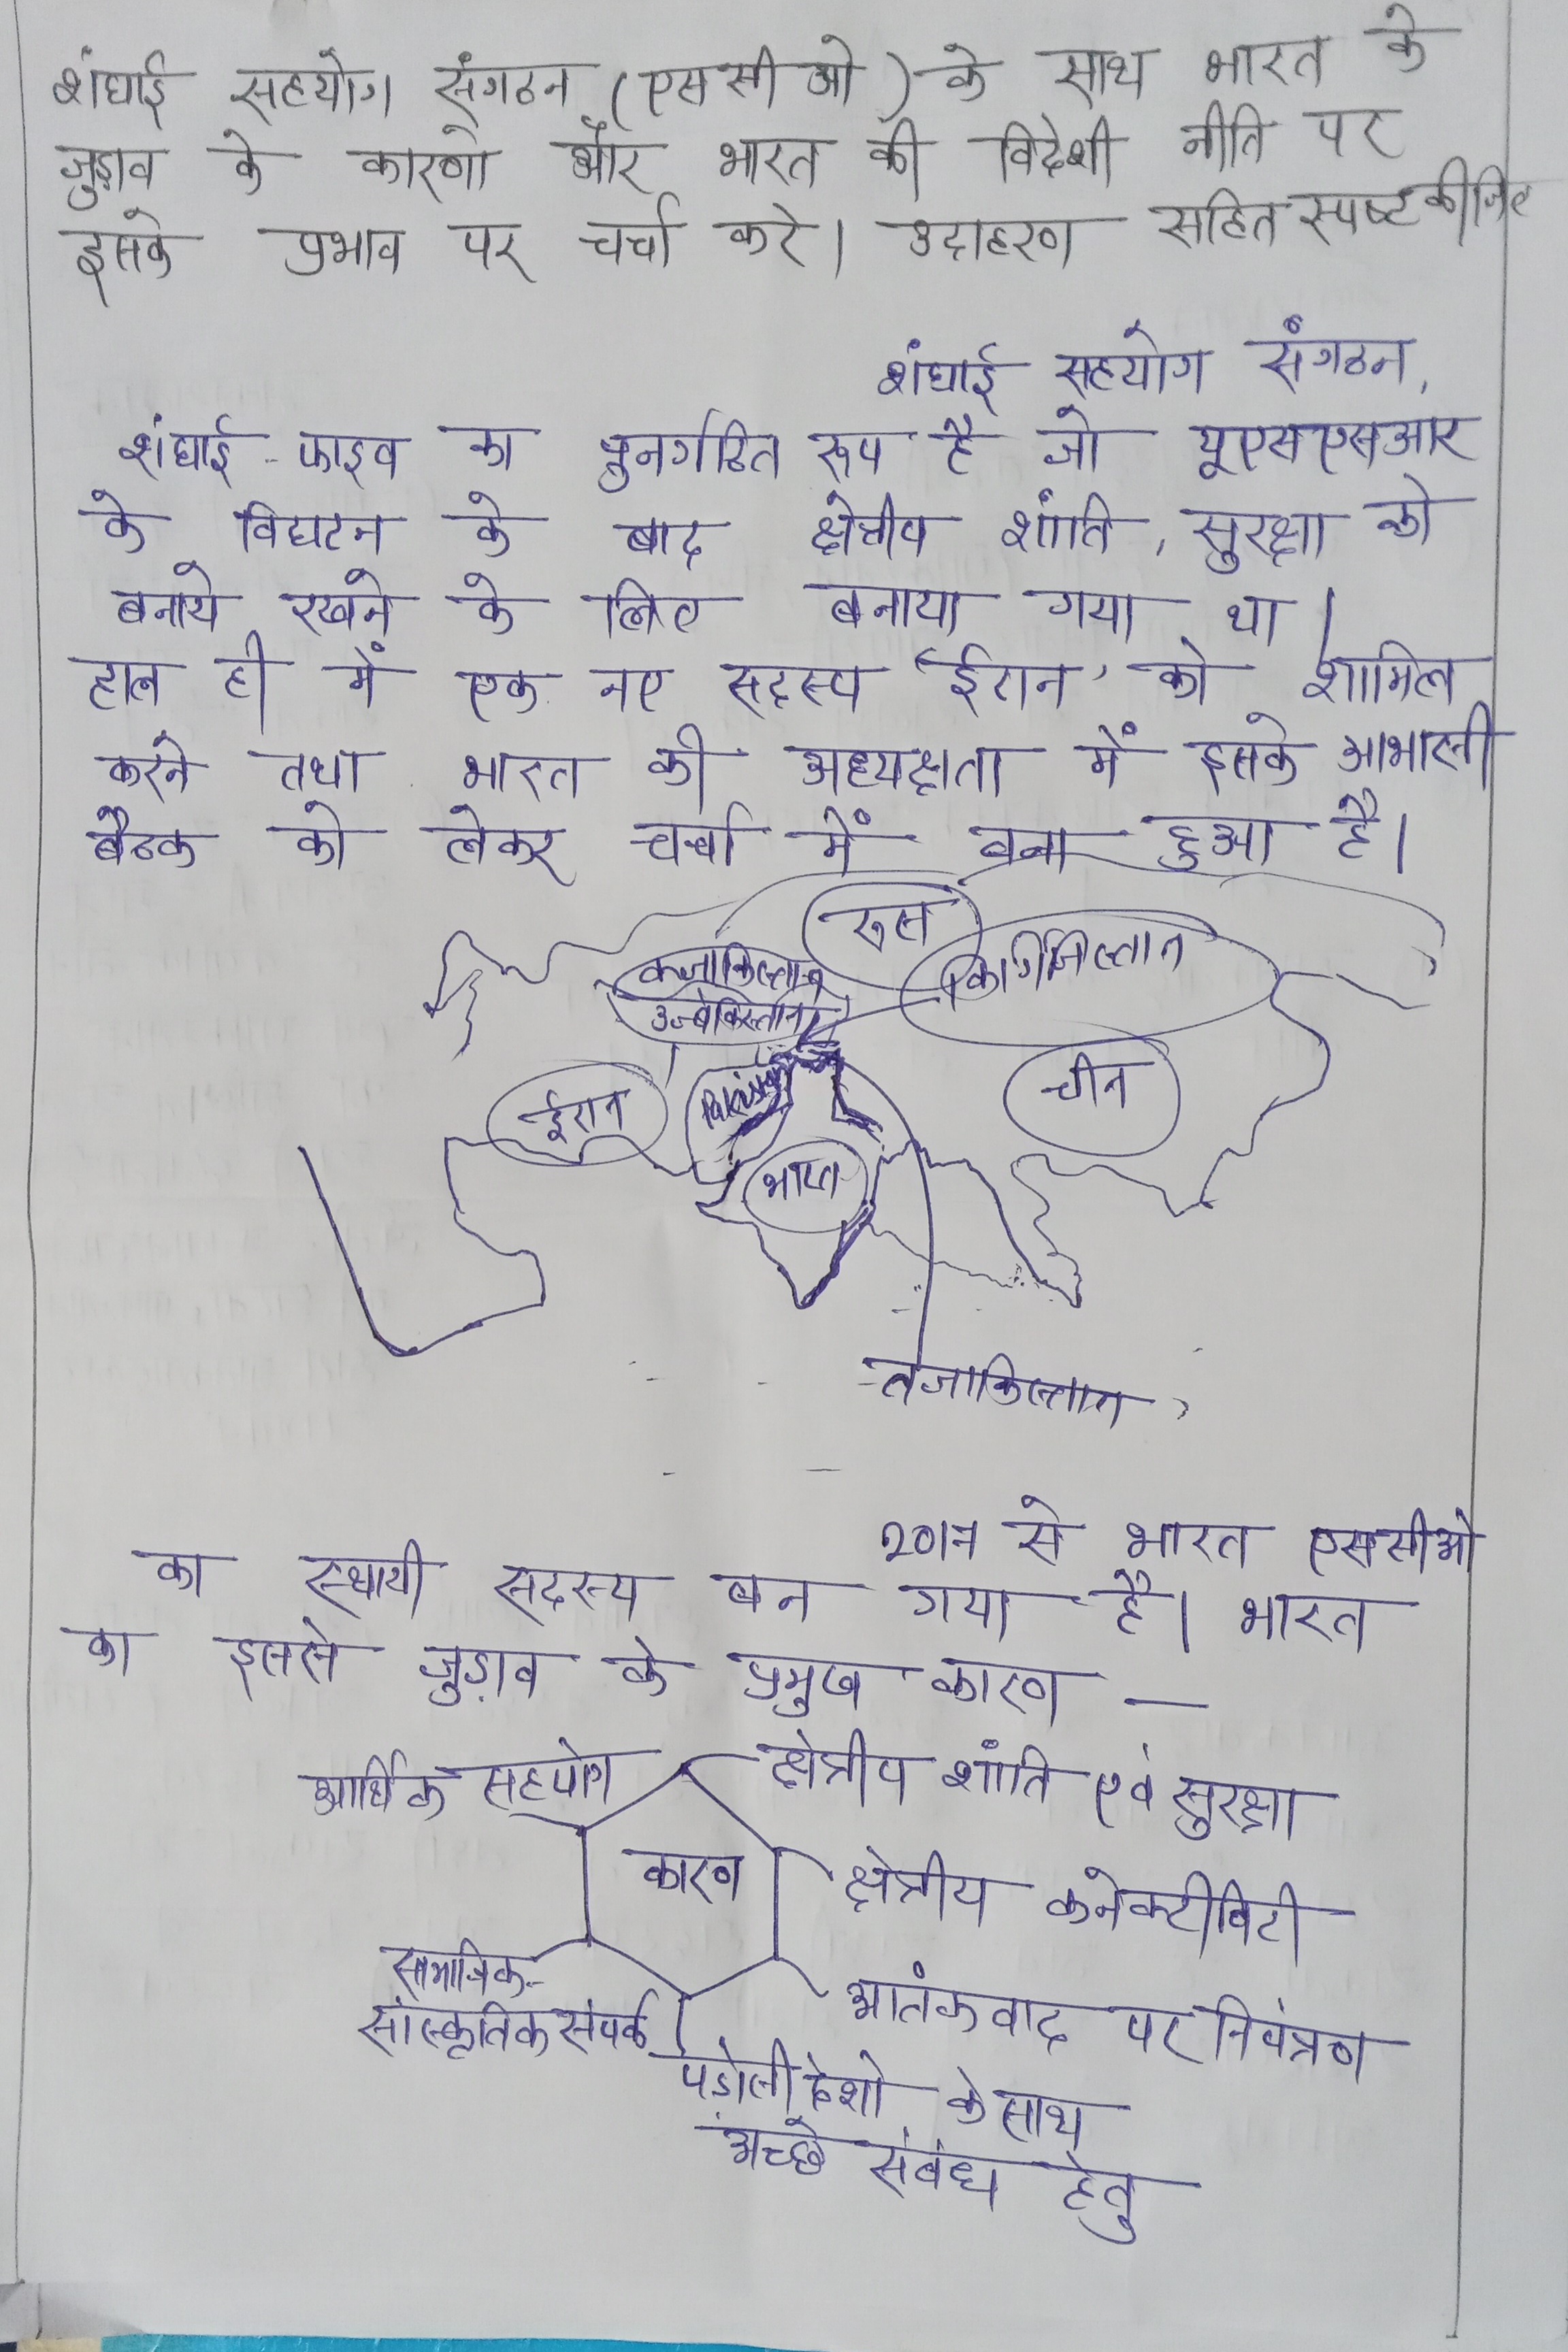 शंघाई सहयोग संगठन (एससीओ) के साथ भारत के
जुड़ाव के कारणो और भारत की विदेशी नीति पर
इसके प्रभाव पर चर्चा करे। उदाहरण सहित स्पष्ट कीजिए
शंघाई सहयोग संगठन,
शंघाई-फाइव का पुनर्गठित रूप है जो यूएसएसआर
के विघटन के बाद क्षेत्रीय शांति, सुरक्षा को
बनाये रखने के लिए बनाया गया था।
हाल ही में एक नए सदस्य 'ईरान' को शामिल
करने तथा भारत की अध्यक्षता में इसके आभासी
बैठक को लेकर चर्चा में बना हुआ है।
रूस
कजाकिस्तान
किर्गिजिस्तान
उज्बेकिस्तान
Pakistan
ईरान
चीन
भारत
तजाकिस्तान
2017 से भारत एससीओ
का स्थायी सदस्य बन गया है। भारत
का इससे जुड़ाव के प्रमुख कारण —
आर्थिक सहयोग
क्षेत्रीय शांति एवं सुरक्षा
कारण
क्षेत्रीय कनेक्टीविटी
सामाजिक-
सांस्कृतिक संपर्क
आतंकवाद पर नियंत्रण
पड़ोसी देशो के साथ
अच्छे संबंध हेतु